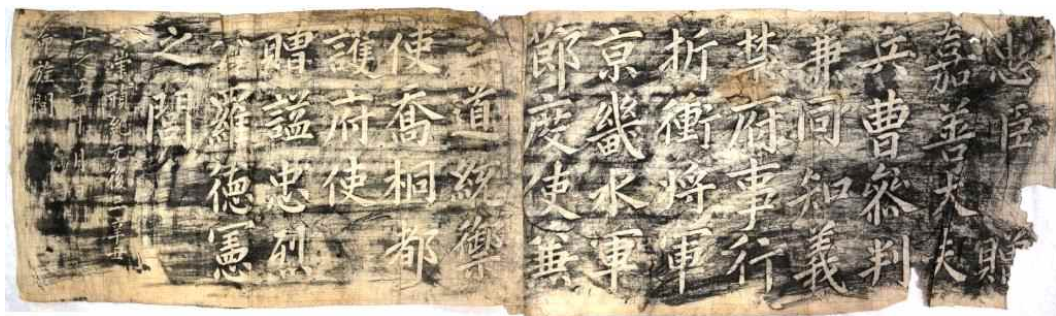 忠臣贈
嘉善大夫
兵曹叅判
兼同知義
禁府事行
折衝将軍
京畿水軍
節度使兼
三道統禦
使喬桐都
護府使
贈諡忠烈
公羅德憲
之閭
崇禎紀元後
上之 十月
命旌閭